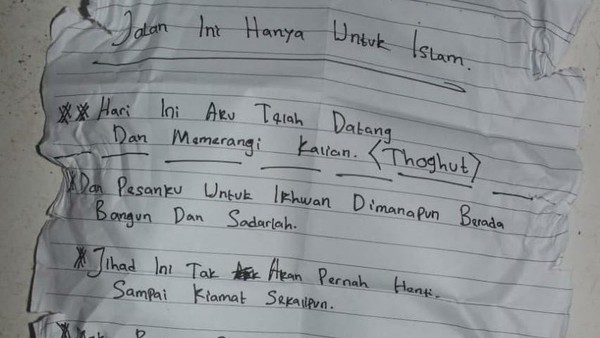 Jalan Ini Hanya Untuk Islam.
** Hari Ini Aku Telah Datang
Dan Memerangi Kalian. <Thoghut>
* Dan Pesanku Untuk Ikhwan Dimanapun Berada
Bangun Dan Sadarlah.
* Jihad Ini Tak Akan Pernah Henti.
Sampai Kiamat Sekalipun.